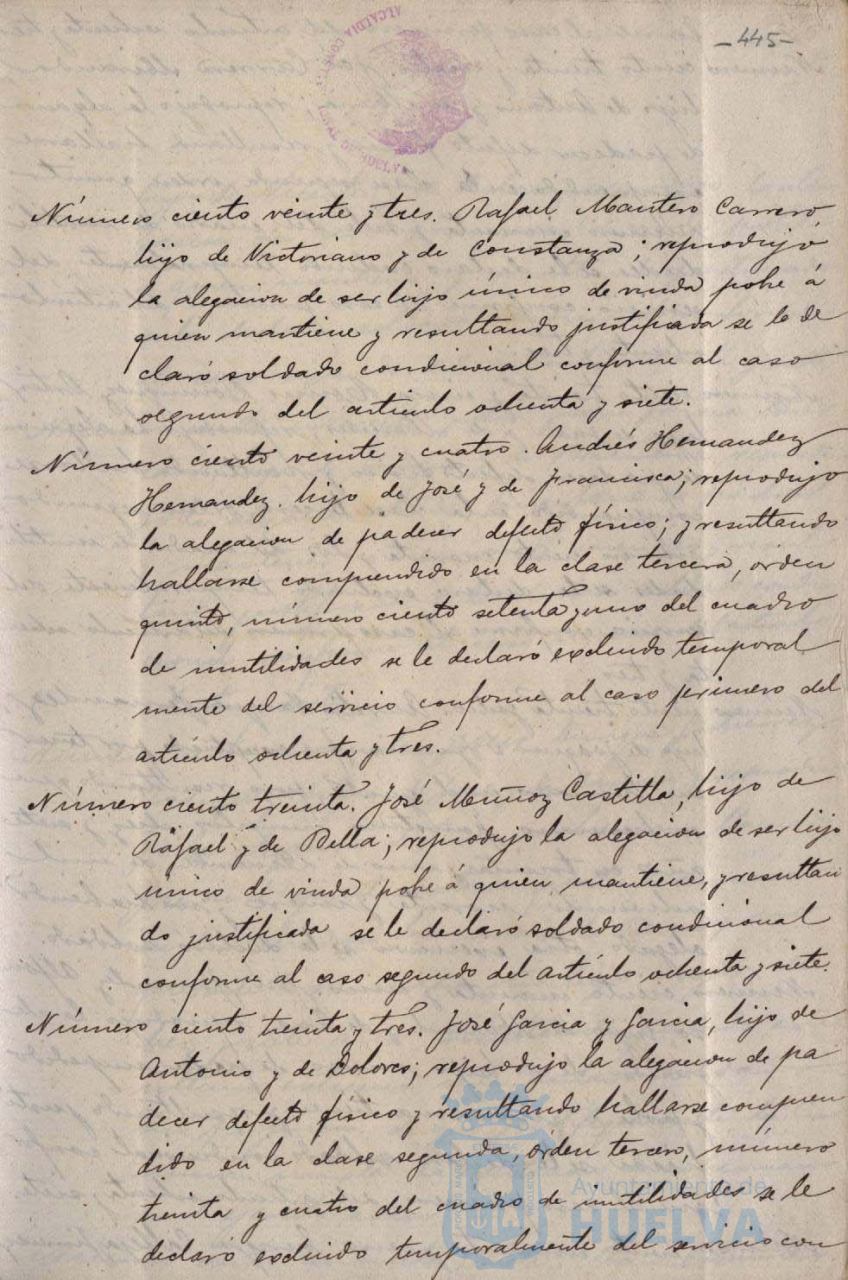 -445-
ALCALDIA
Número ciento veinte y tres. Rafael Mantero Carrero,
hijo de Victoriano y de Constanza; reprodujo
la alegacion de ser hijo único de viuda pobre á
quien mantiene y resultando justificada se le de
claró soldado condicional conforme al caso
segundo del artículo ochenta y siete.
Número ciento veinte y cuatro. Andrés Hernandez
Hernandez. hijo de José y de Francisca; reprodujo
la alegacion de padecer defecto físico; y resultando
hallarse comprendido en la clase tercera, órden
quinto, número ciento setenta y uno del cuadro
de inutilidades se le declaró excluido temporal
mente del servicio conforme al caso primero del
artículo ochenta y tres.
Número ciento treinta. José Muñoz Castilla, hijo de
Rafael y de Bella; reprodujo la alegacion de ser hijo
único de viuda pobre á quien mantiene, y resultan
do justificada se le declaró soldado condicional
conforme al caso segundo del artículo ochenta y siete.
Número ciento treinta y tres. José Garcia y Garcia, hijo de
Antonio y de Dolores; reprodujo la alegacion de pa
decer defecto físico y resultando hallarse compren
dido en la clase segunda, órden tercero, número
treinta y cuatro del cuadro de inutilidades se le
declaró excluido temporalmente del servicio con
Ayuntamiento de
HUELVA